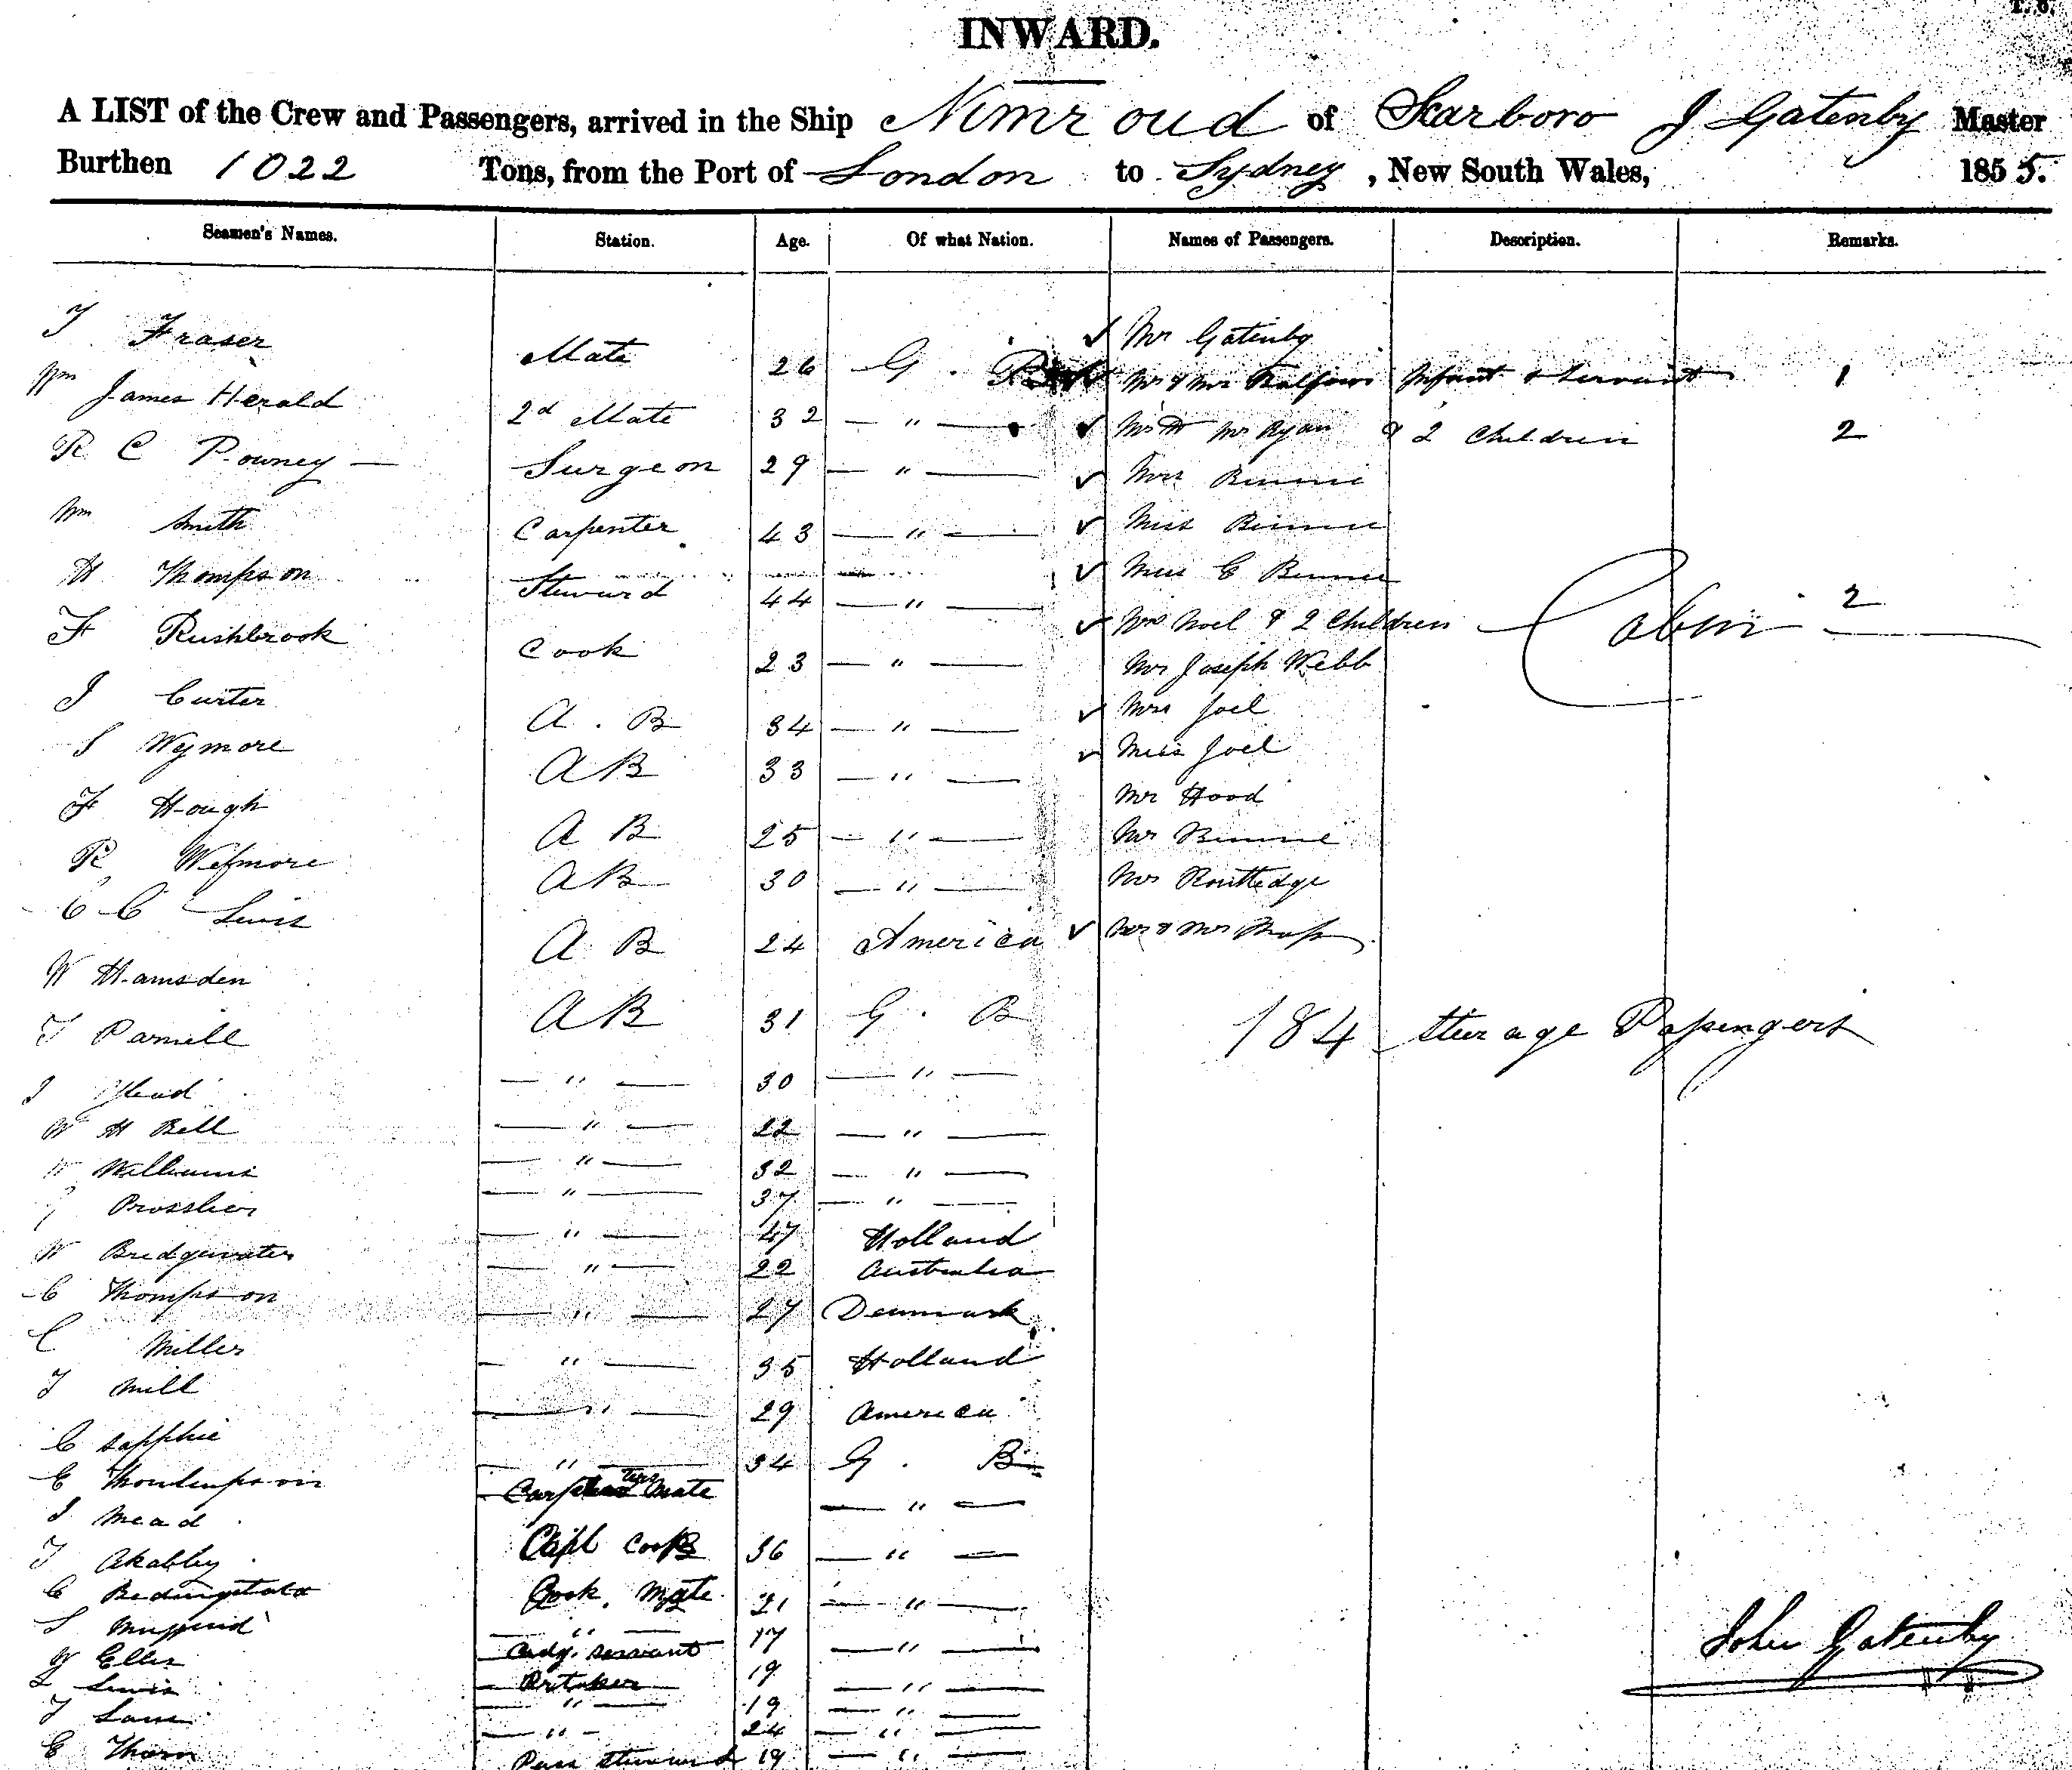 INWARD.
A LIST of the Crew and Passengers, arrived in the Ship Nimroud of Scarboro J Gatenby Master
Burthen 1022 Tons, from the Port of London to Sydney, New South Wales, 1855.
Seamen's Names. Station. Age. Of what Nation. Names of Passengers. Description. Remarks.
J Fraser Mate 26 G. B Mr Gatenby
Wm James Herald 2d Mate 32 — " — Mr & Mrs Balfour Infant & Servant 1
R C Powney — Surgeon 29 — " — Mr Ryan & 2 Children 2
Wm Smith Carpenter 43 — " — Mrs Binnie
H Thompson Steward 44 — " — Miss Binnie
F Rushbrook Cook 23 — " — Miss C Binnie
J Carter A. B 34 — " — Mrs Noel & 2 Children Cabin 2
S Wymore AB 33 — " — Mr Joseph Webb
F Hough A B 25 — " — Mrs Joel
R Wymore AB 30 — " — Miss Joel
C C Lewis A B 24 America Mr Hood
W Hamsden AB 31 G. B Mr Binnie
Mr Routledge
Mr & Mrs
184 Steerage Passengers
T Parnell — " — 30 — " —
J Head — " — 22 — " —
W H Bell — " — 32 — " —
W Williams — " — 37 — " —
— " — 47 Holland
W Bridgewater — " — 22 Australia
C Thompson — " — 27 Denmark
C Miller — " — 35 Holland
J Mill — " — 29 America
C — " — 34 G. B
E Carpenters Mate — " —
J Mead Capt Cook 36 — " —
J Akabby Cook. Mate 21 — " —
C — " — 17 — " —
S servant 19 — " —
W Ellis 19 — " —
L Lewis — " — 24 — " —
J Lane — " — 19 — " —
E Thorn Pass Steward
John Gatenby